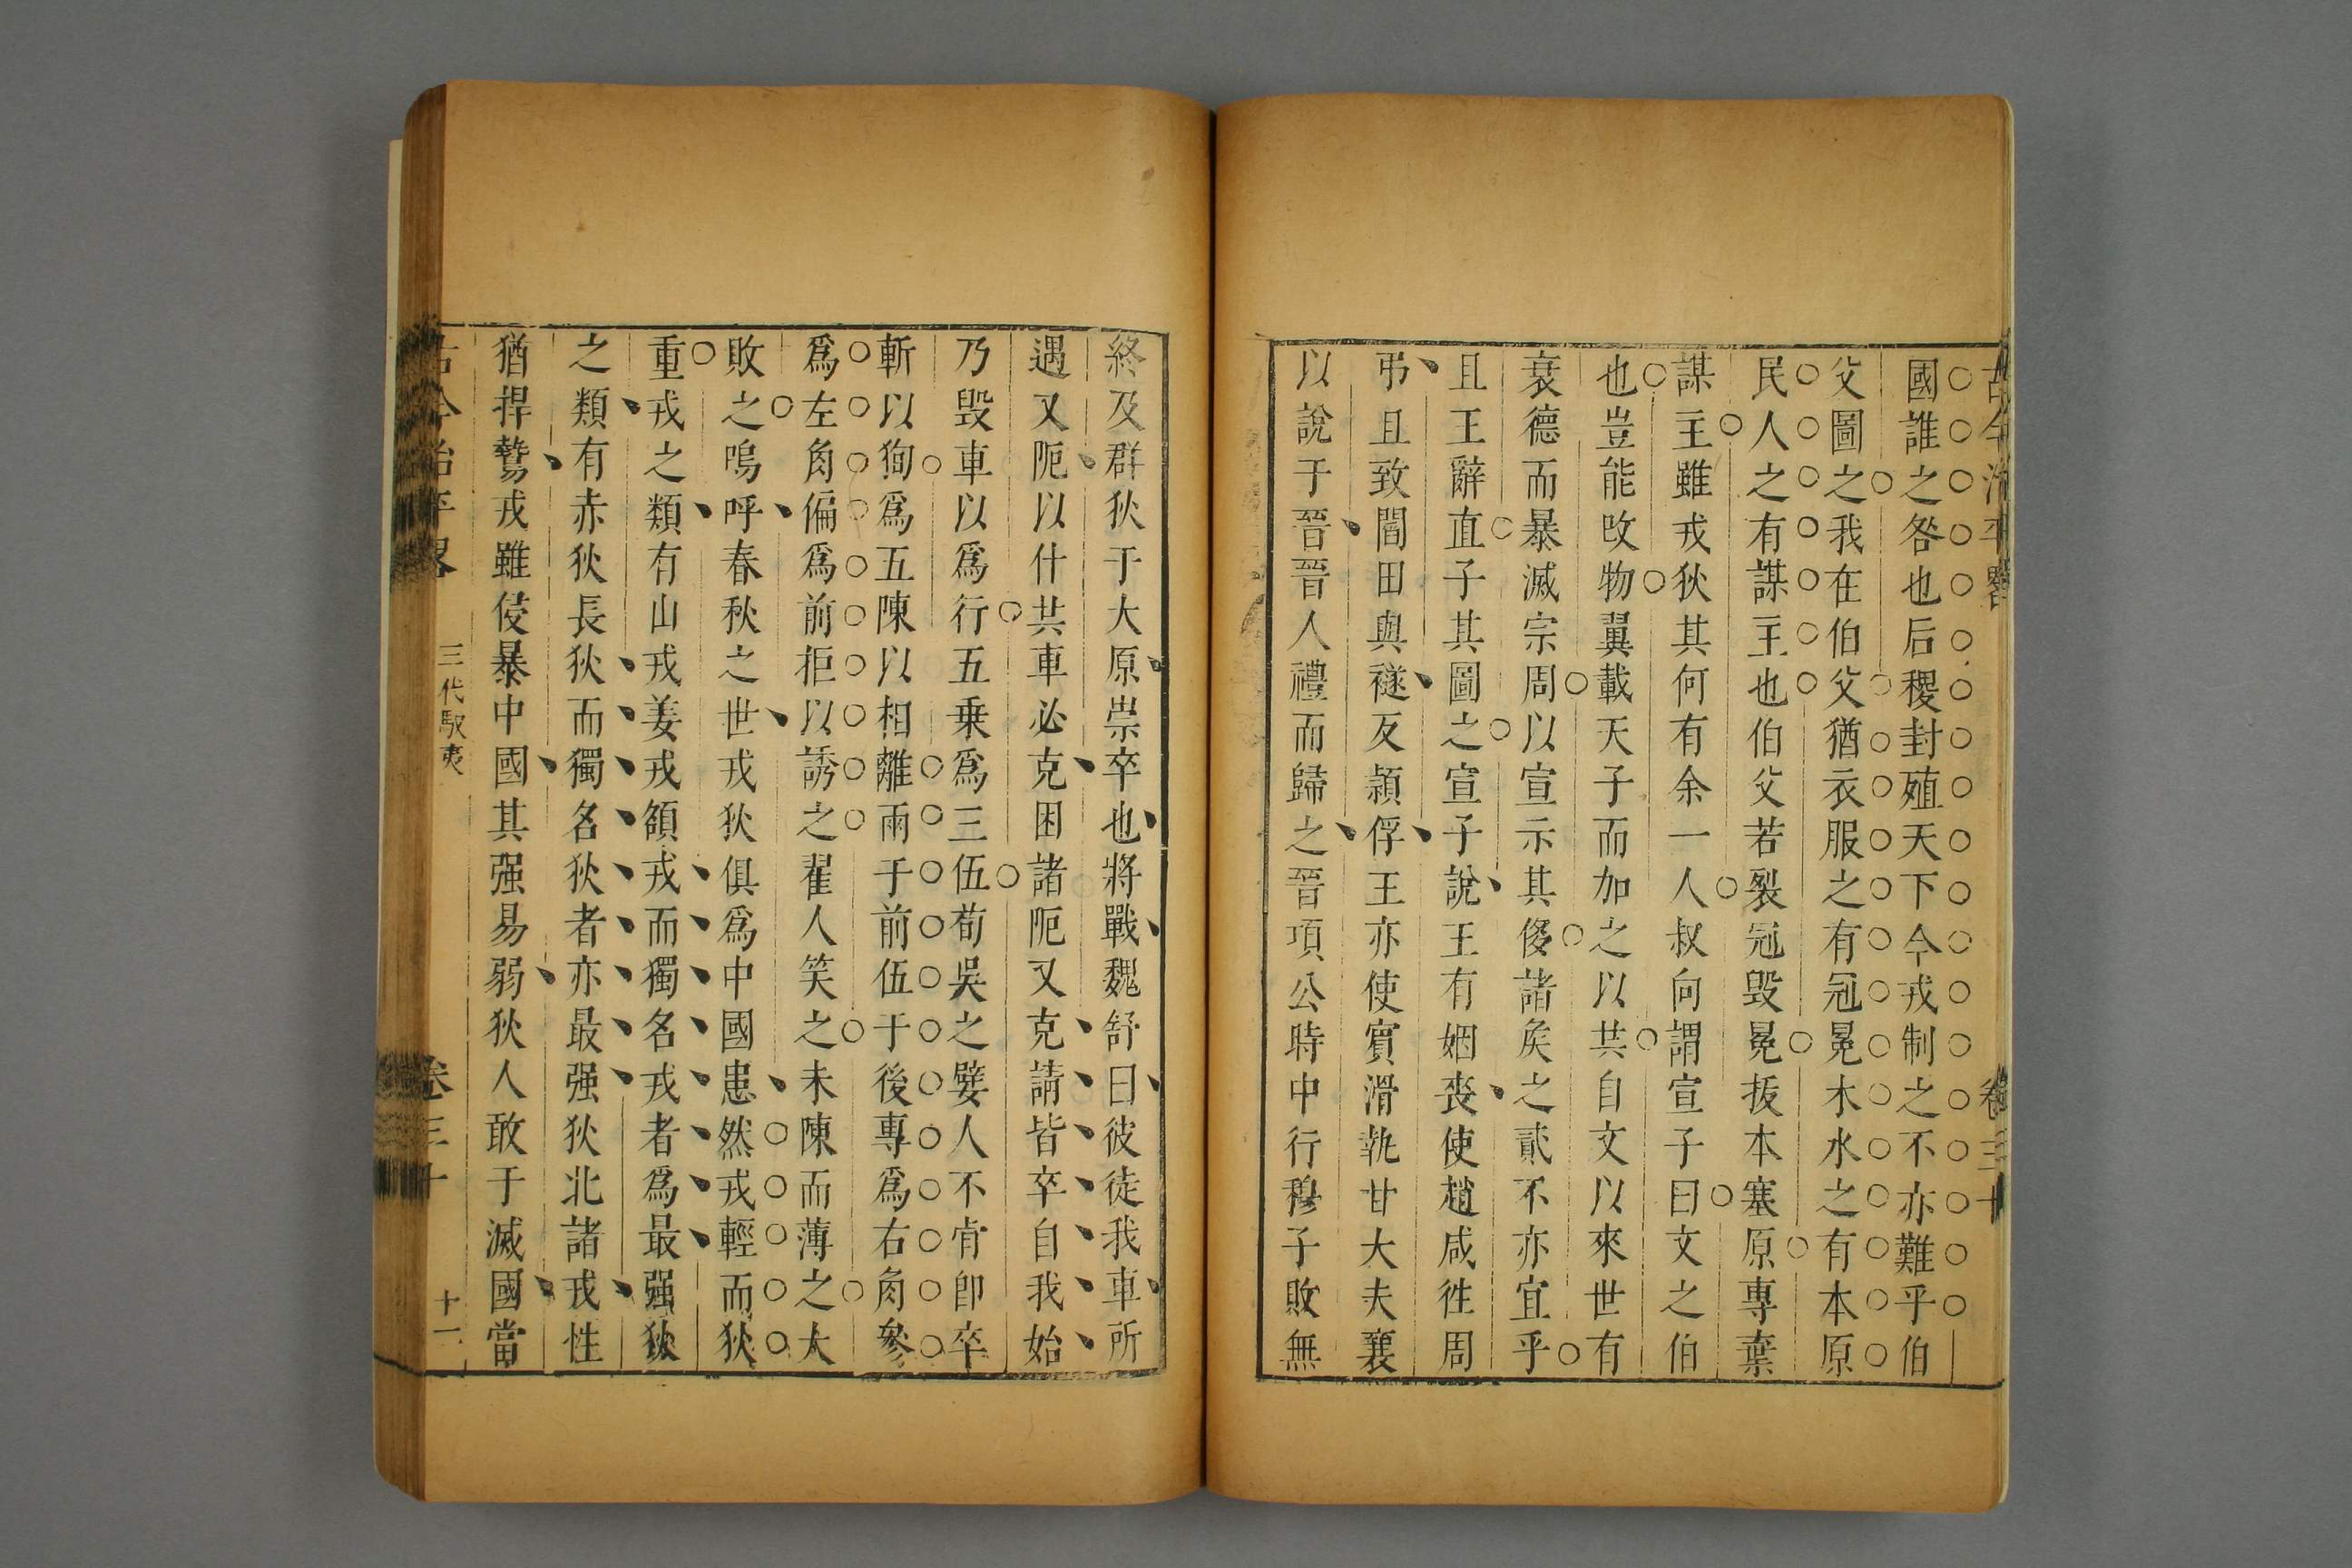 古今治平畧
卷三十
國誰之咎也后稷封殖天下今戎制之不亦難乎伯
父圖之我在伯父猶衣服之有冠冕木水之有本原
民人之有謀主也伯父若裂冠毀冕拔本塞原專棄
謀主雖戎狄其何有余一人叔向謂宣子曰文之伯
也豈能改物翼載天子而加之以共自文以來世有
衰德而暴滅宗周以宣示其侈諸矦之貳不亦宜乎
且王辭直子其圖之宣子說王有姻喪使趙成徃周
弔且致閻田與襚反潁俘王亦使賓滑執甘大夫襄
以說于晉晉人禮而歸之晉項公時中行穆子敗無
終及群狄于大原崇卒也將戰魏舒曰彼徒我車所
遇又阨以什共車必克困諸阨又克請皆卒自我始
乃毀車以爲行五乗爲三伍荀吳之嬖人不肯卽卒
斬以狥爲五陳以相離兩于前伍于後專爲右角參
爲左角偏爲前拒以誘之翟人笑之未陳而薄之大
敗之嗚呼春秋之世戎狄俱爲中國患然戎輕而狄
重戎之類有山戎姜戎領戎而獨名戎者爲最强狄
之類有赤狄長狄而獨名狄者亦最强狄北諸戎性
猶捍鷙戎雖侵暴中國其强易弱狄人敢于滅國當
古今治平畧
三代馭夷
卷三十
十一